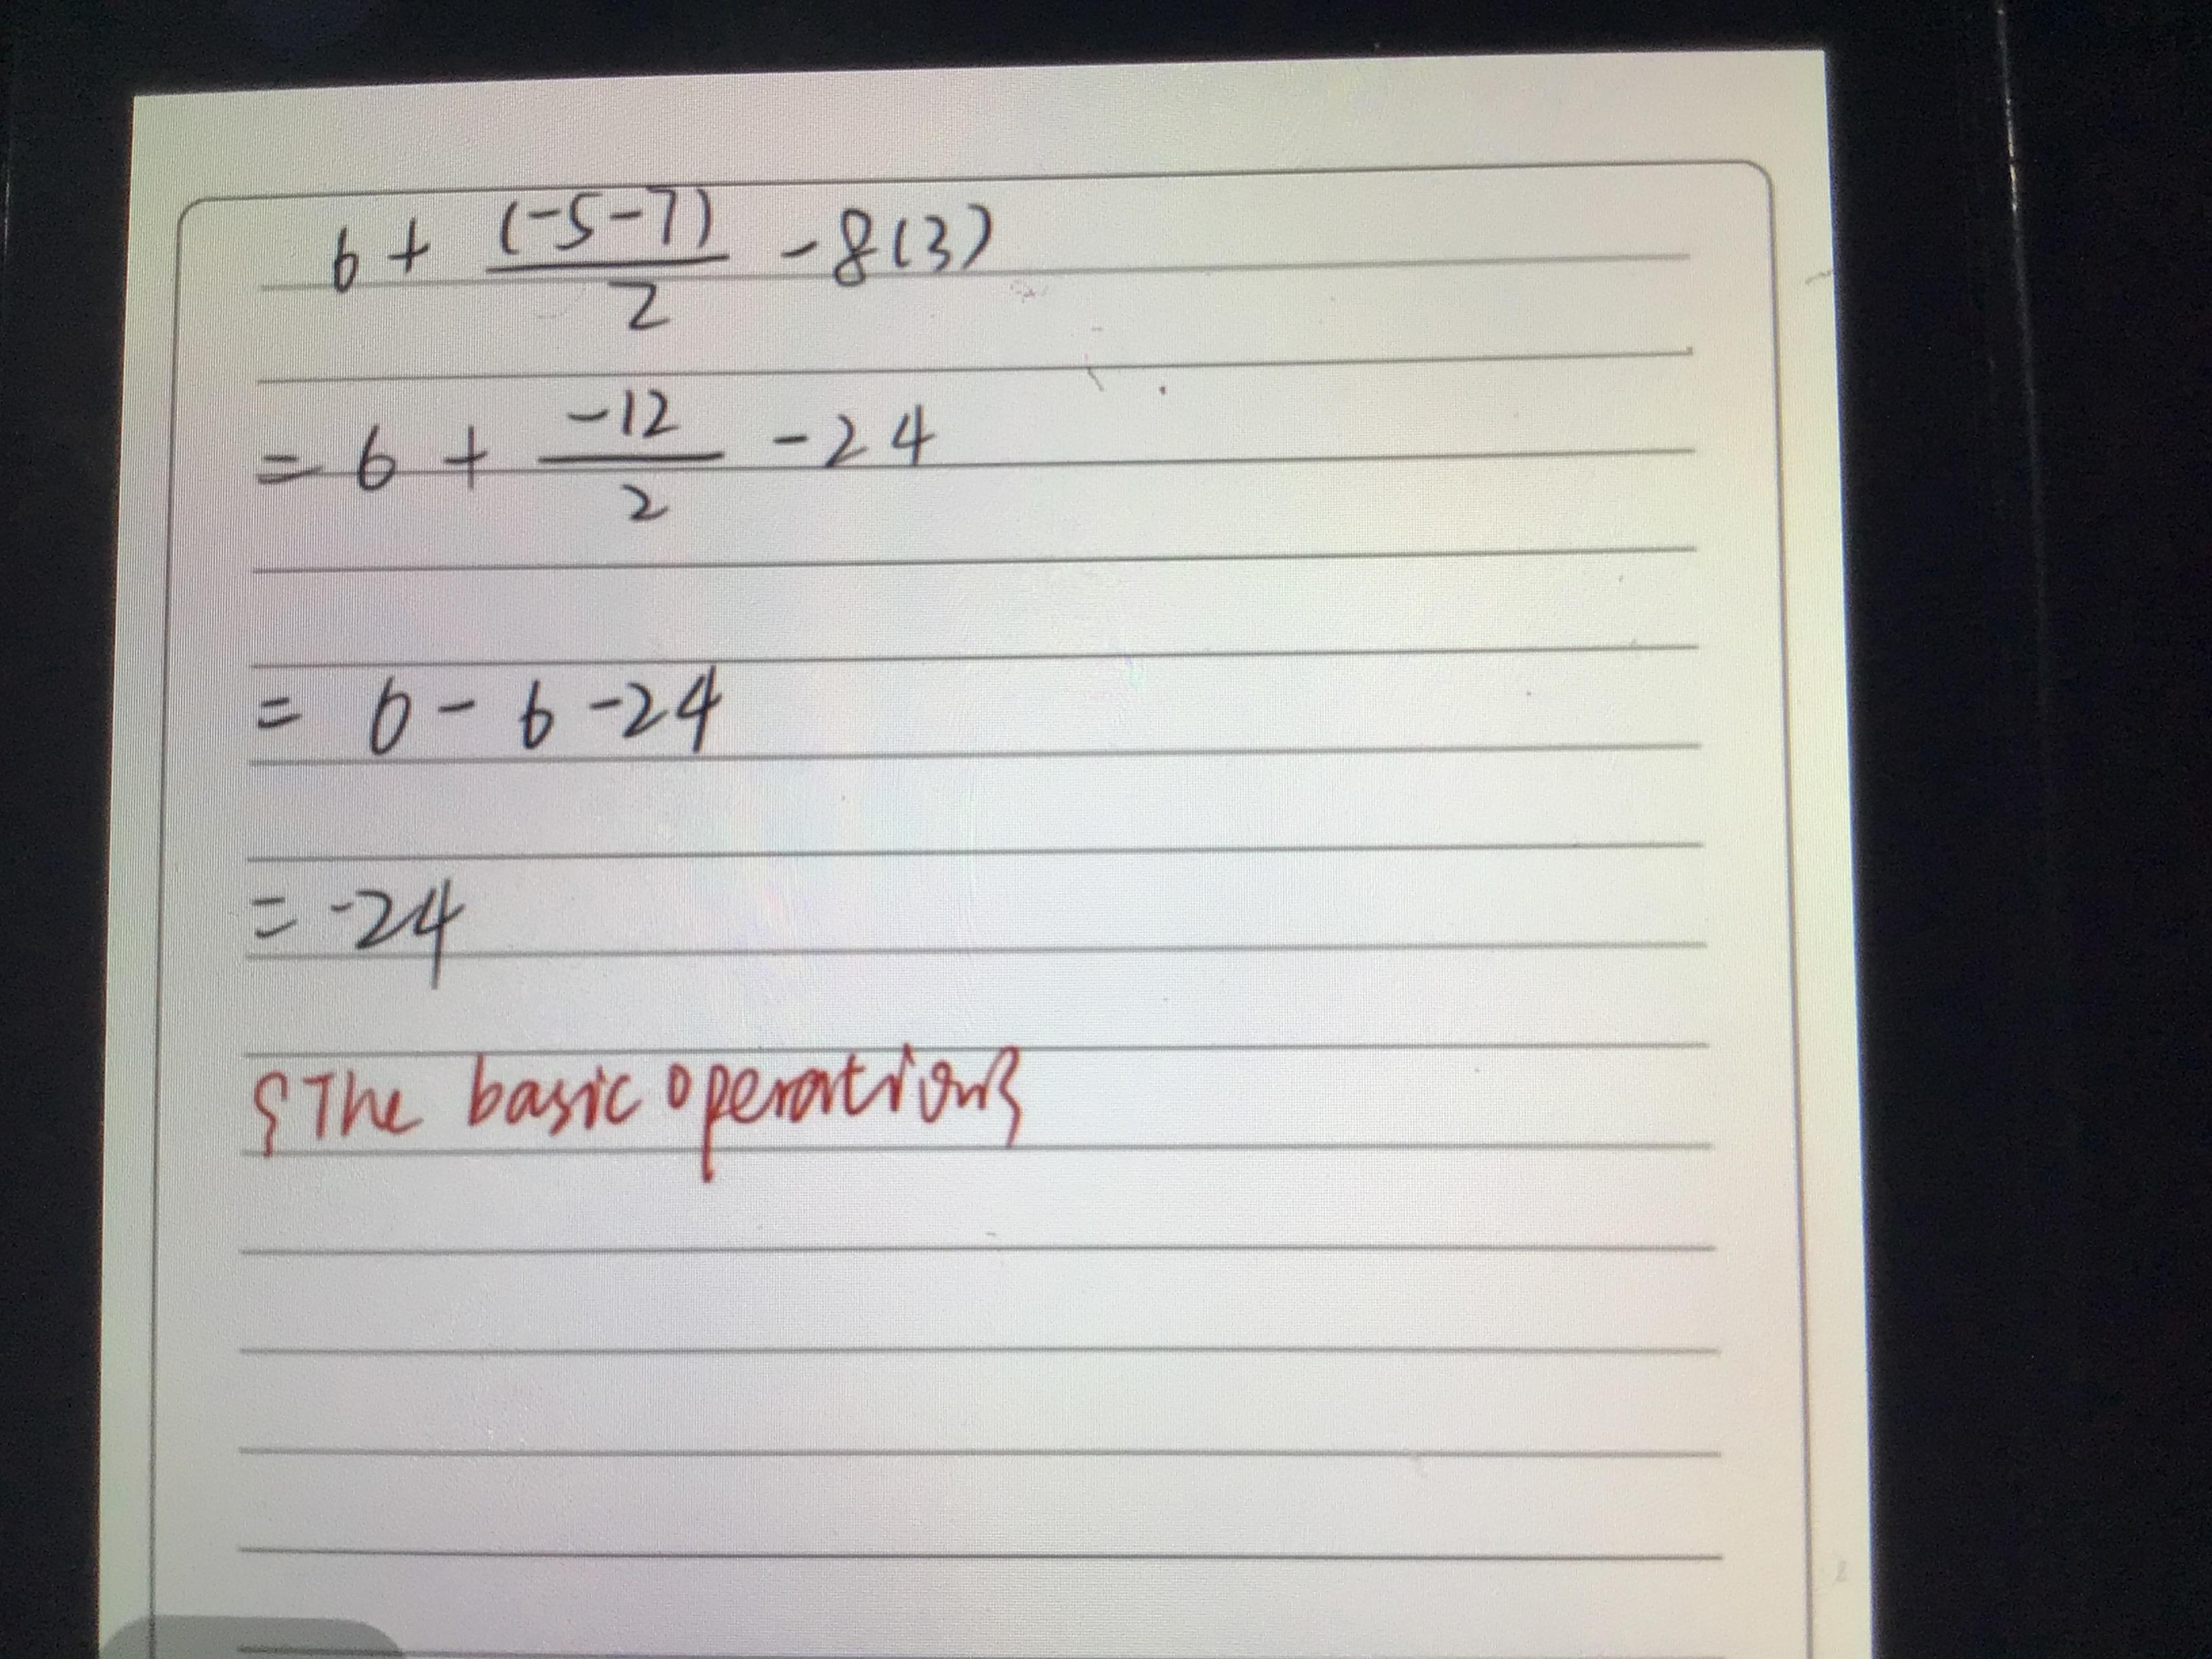 6 + (-5-7)/2 - 8(3)
= 6 + -12/2 - 24
= 6 - 6 - 24
= -24
{The basic operation}